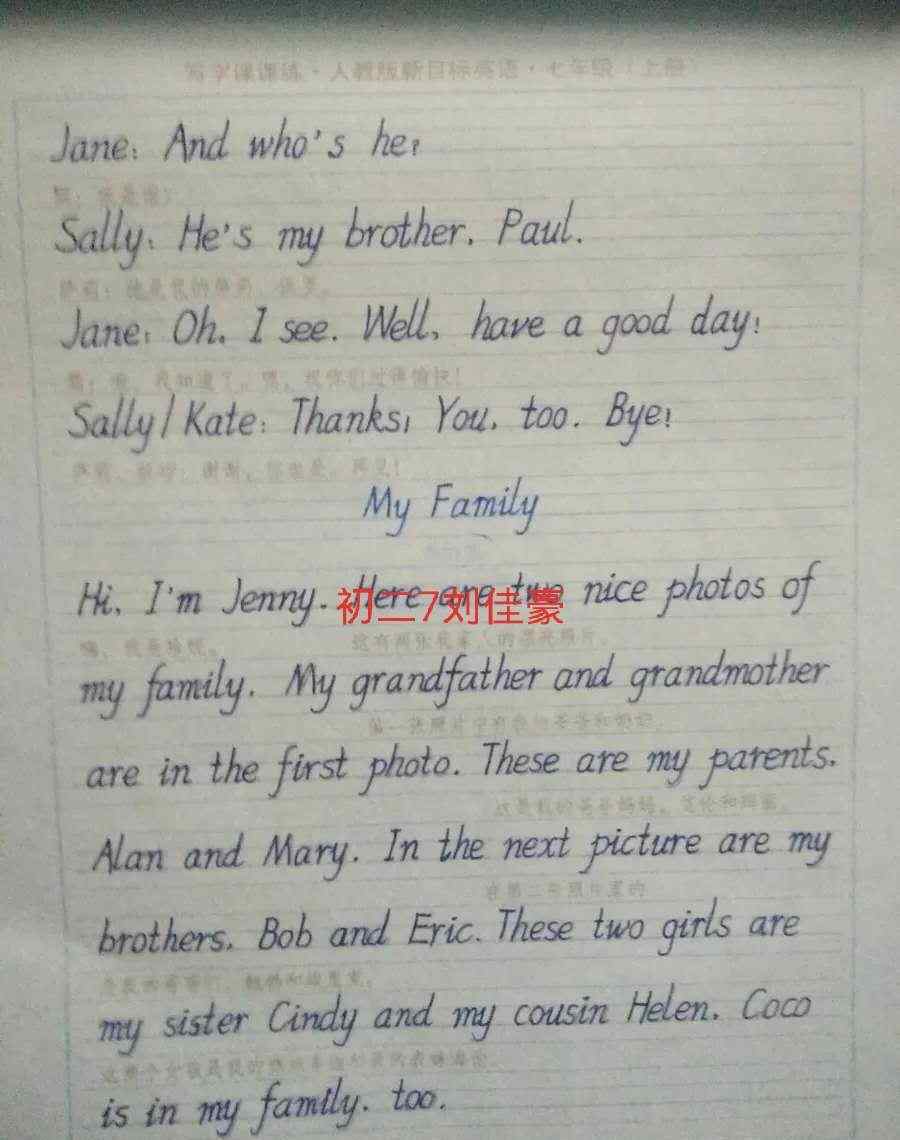 写字课课练·人教版新目标英语·七年级（上册）
Jane: And who's he?
Sally: He's my brother, Paul.
Jane: Oh, I see. Well, have a good day!
Sally/Kate: Thanks! You, too. Bye!
My Family
Hi, I'm Jenny. Here are two nice photos of
初二7刘佳豪
my family. My grandfather and grandmother
are in the first photo. These are my parents,
Alan and Mary. In the next picture are my
brothers, Bob and Eric. These two girls are
my sister Cindy and my cousin Helen. Coco
is in my family, too.